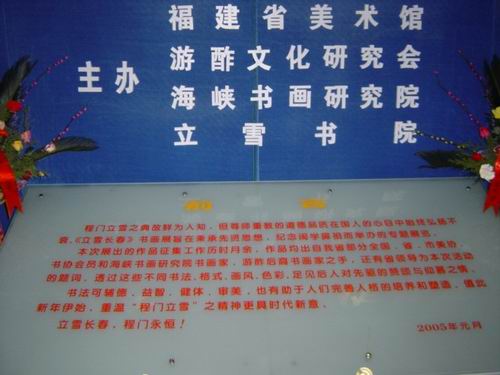 福建省美术馆
游酢文化研究会
主办
海峡书画研究院
立雪书院
前言
程门立雪之典故鲜为人知，但尊师重教的道德品质在国人的心目中始终弘扬不
衰，《立雪长春》书画展旨在秉承先贤思想，纪念闽学鼻祖而举办的专题展览。
本次展出的作品征集工作历时月余，作品均出自我省部分全国、省、市美协、
书协会员和海峡书画研究院书画家、游酢后裔书画家之手，还有省领导为本次活动
的题词。透过这些不同书法、格式、画风、色彩，足见后人对先驱的赞颂与仰慕之情。
书法可辅德、益智、健体、审美，也有助于人们完善人格的培养和塑造，值此
新年伊始，重温“程门立雪”之精神更具时代新意。
立雪长春，程门永恒！
2005年元月